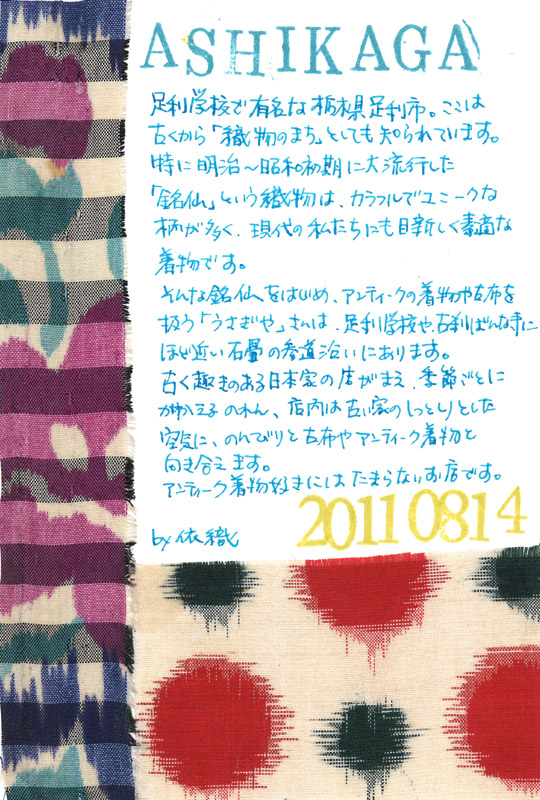 ASHIKAGA
足利学校で有名な栃木県足利市。ここは
古くから「織物のまち」としても知られています。
特に明治〜昭和初期に大流行した
「銘仙」という織物は、カラフルでユニークな
柄が多く、現代の私たちにも目新しく素適な
着物です。
そんな銘仙をはじめ、アンティークの着物や古布を
扱う「うさぎや」さんは、足利学校や、古刹ばんな寺に
ほど近い石畳の参道沿いにあります。
古く趣きのある日本家の店がまえ、季節ごとに
かわるのれん、店内は古い家のしっとりとした
空気に、のんびりと古布やアンティーク着物と
向き合えます。
アンティーク着物好きにはたまらないお店です。
by 依織
20110814